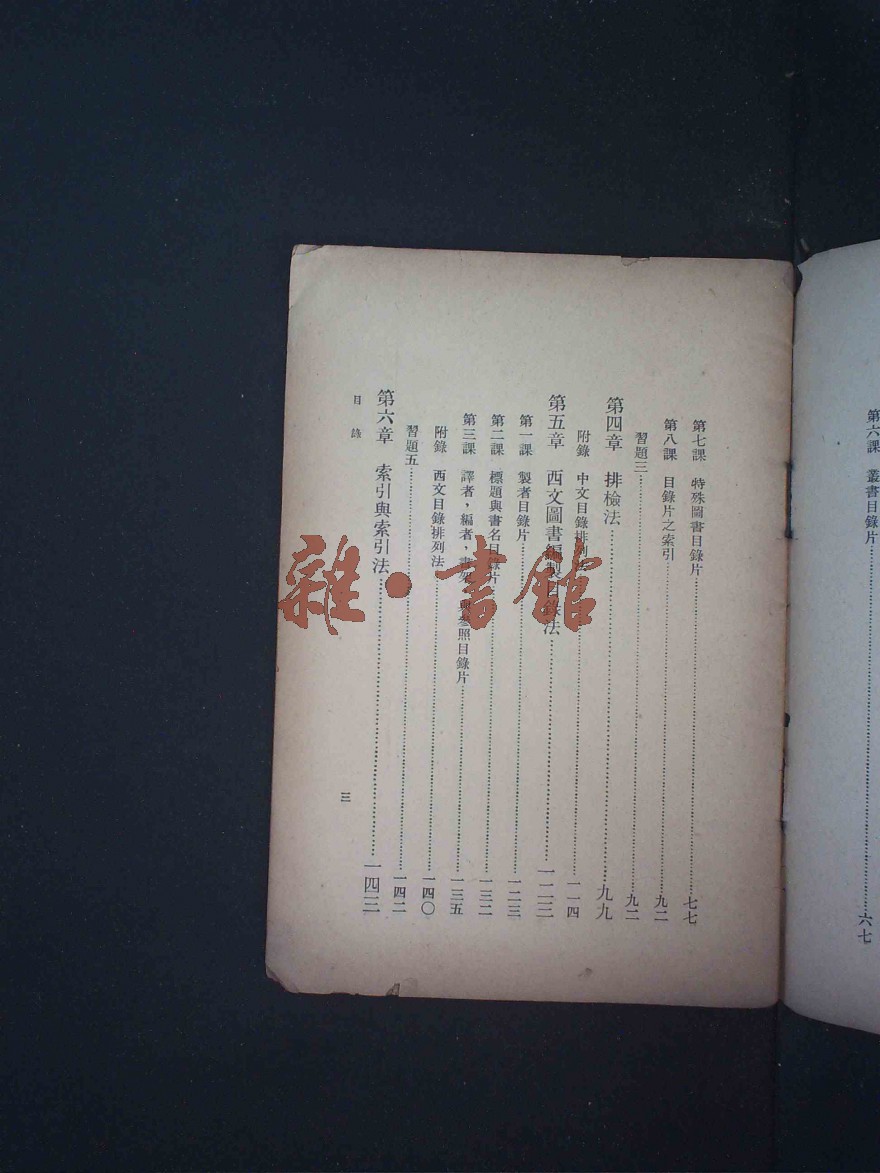 第六課　叢書目錄片……六七
第七課　特殊圖書目錄片……七七
第八課　目錄片之索引……九二
習題三……九二
第四章　排檢法……九九
附錄　中文目錄排列法……一一四
第五章　西文圖書編製目錄法……一二三
第一課　製者目錄片……一二三
第二課　標題與書名目錄片……一三二
第三課　譯者，編者，書架，與參照目錄片……一三五
附錄　西文目錄排列法……一四〇
習題五……一四二
第六章　索引與索引法……一四三
目錄
三
雜·書館